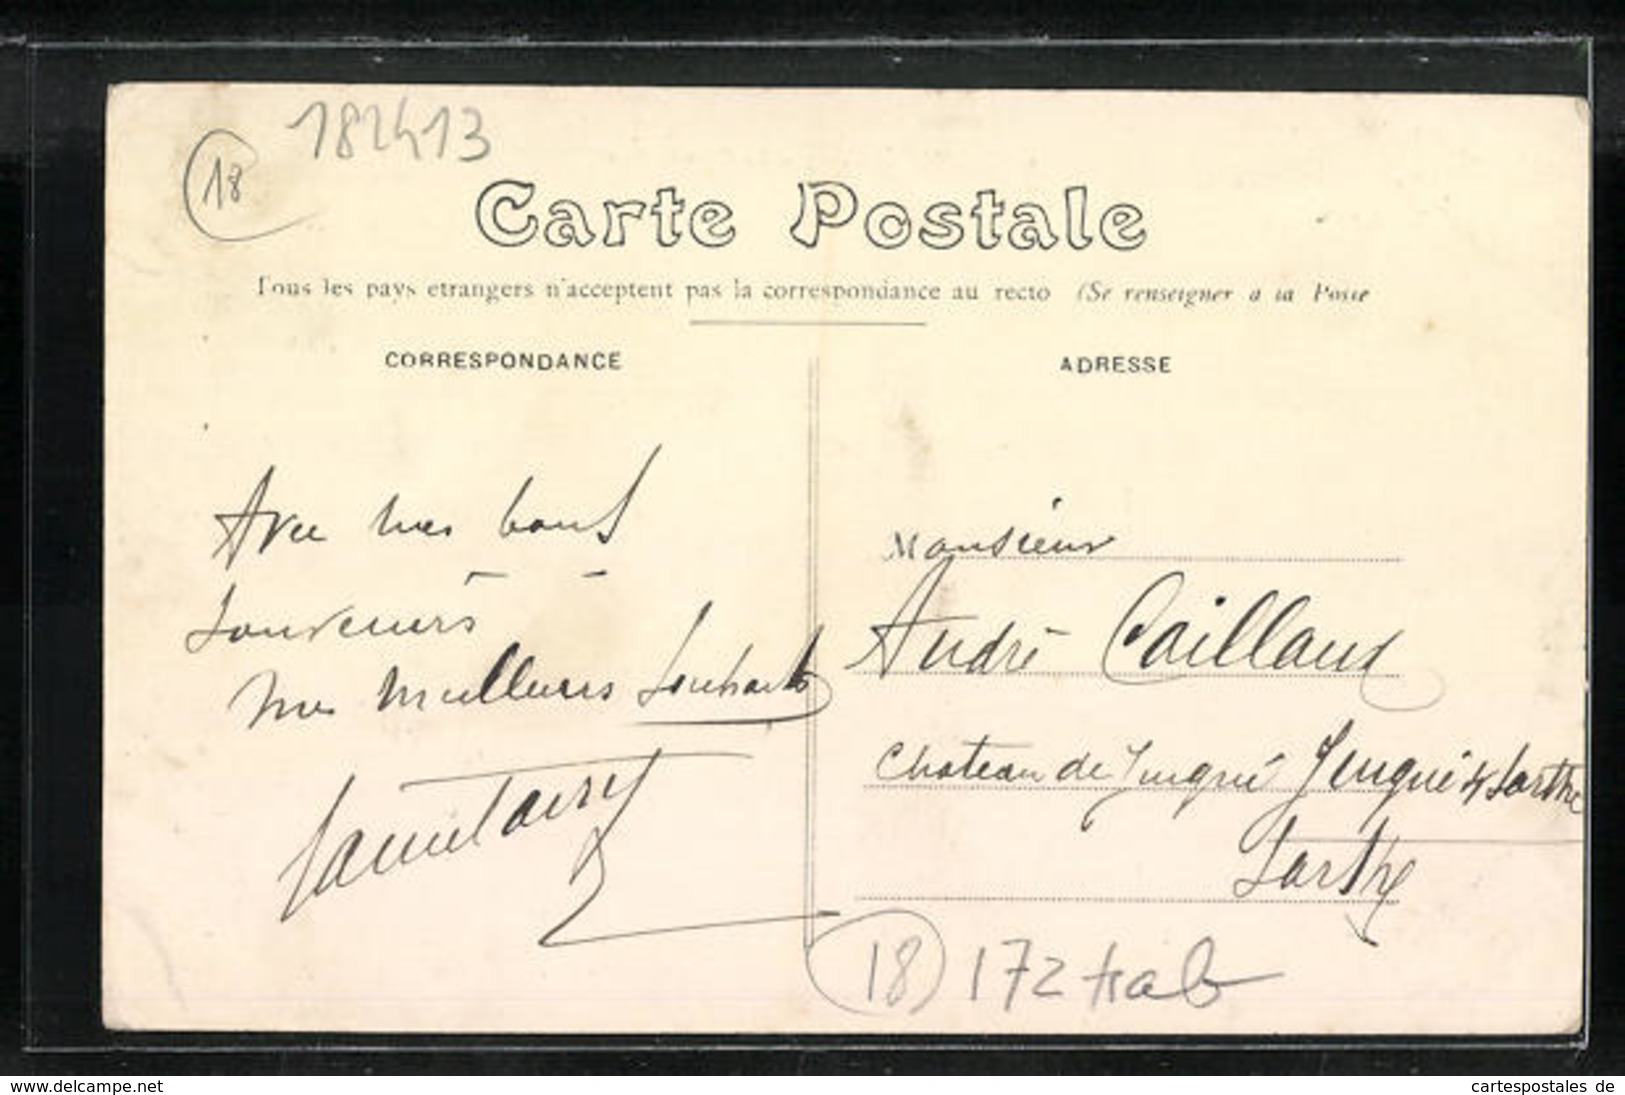 182413
18
Carte Postale
Tous les pays etrangers n'acceptent pas la correspondance au recto (Se renseigner a la Poste
CORRESPONDANCE
ADRESSE
Avec mes bons
souvenirs
mes meilleurs souhaits
Monsieur
André Caillaud
Chateau de Juigné Juigné s/ Sarthe
Sarthe
18 172
www.delcampe.net
cartespostales de